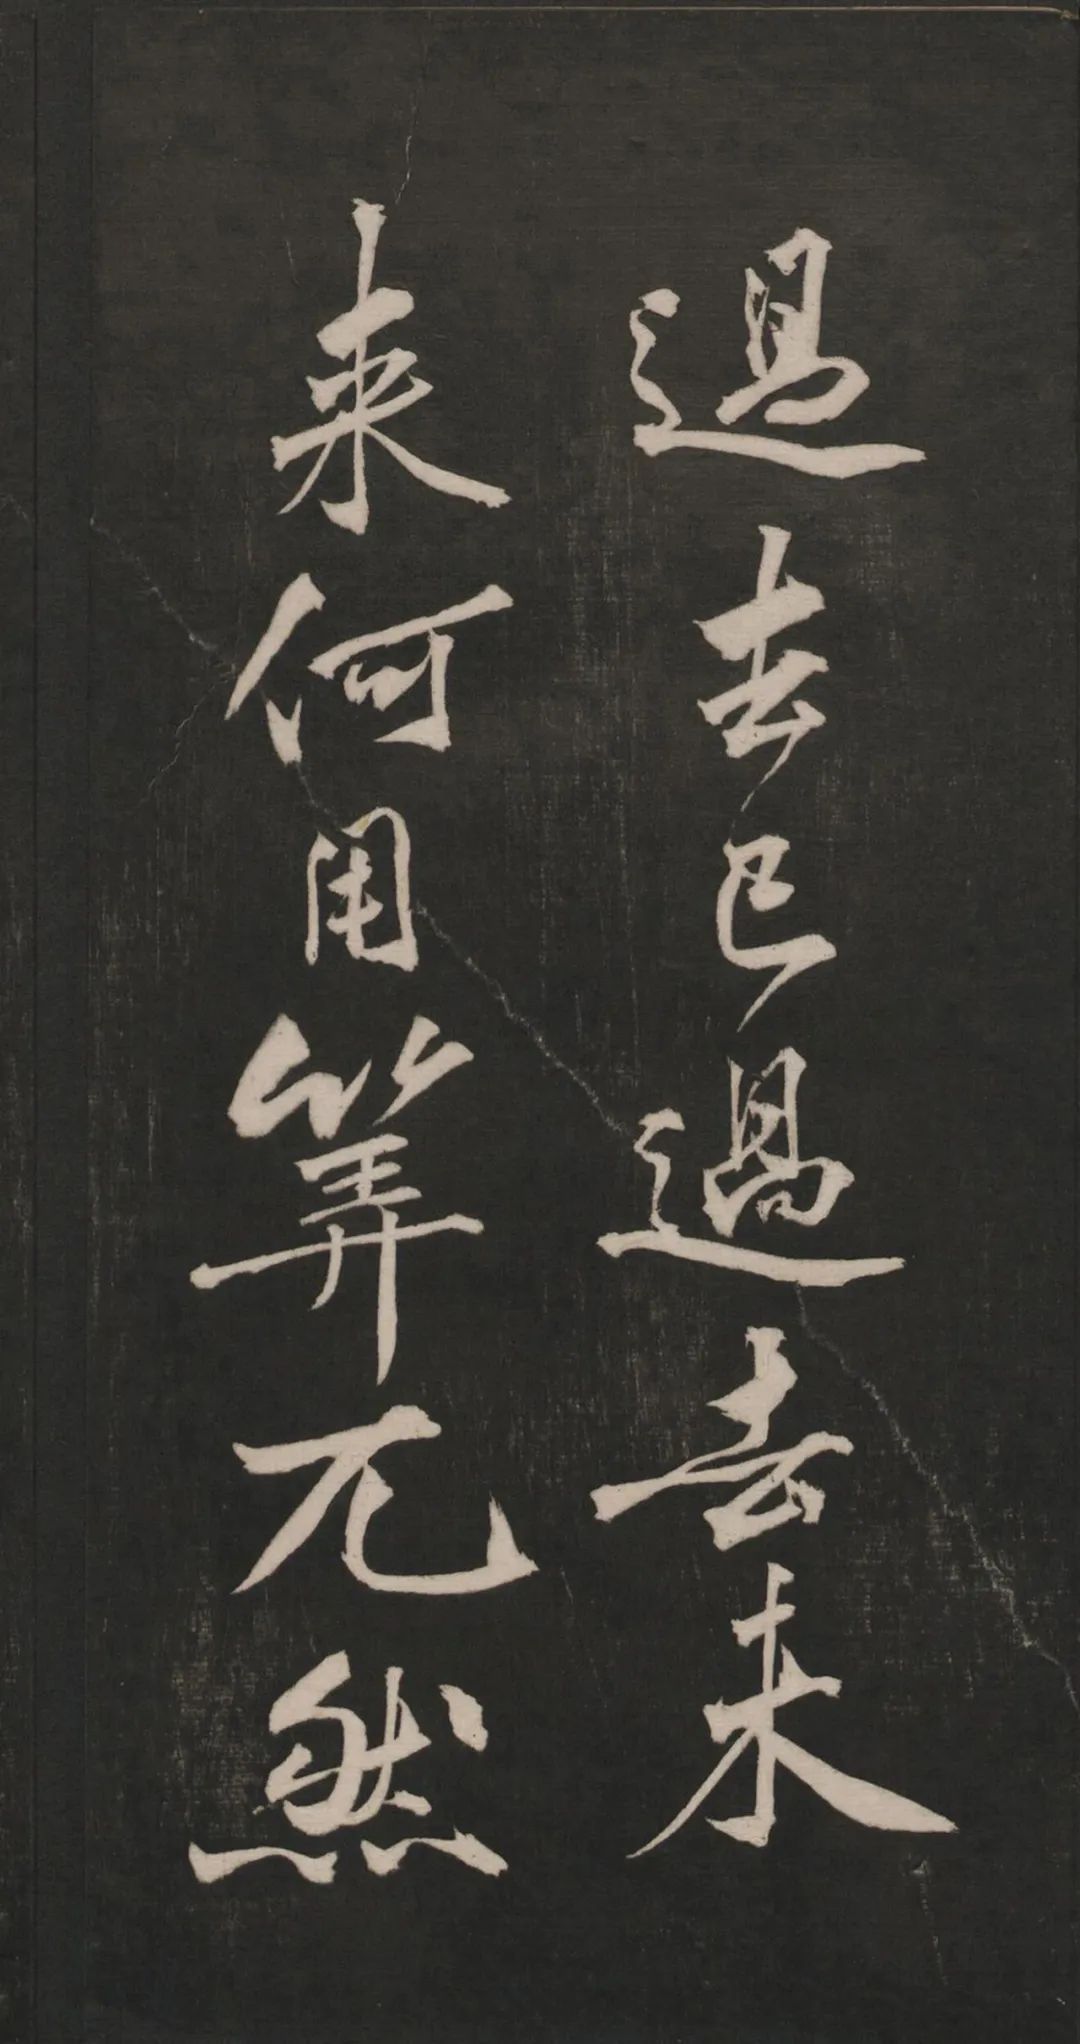 過去已過去未
来何用筭兀然